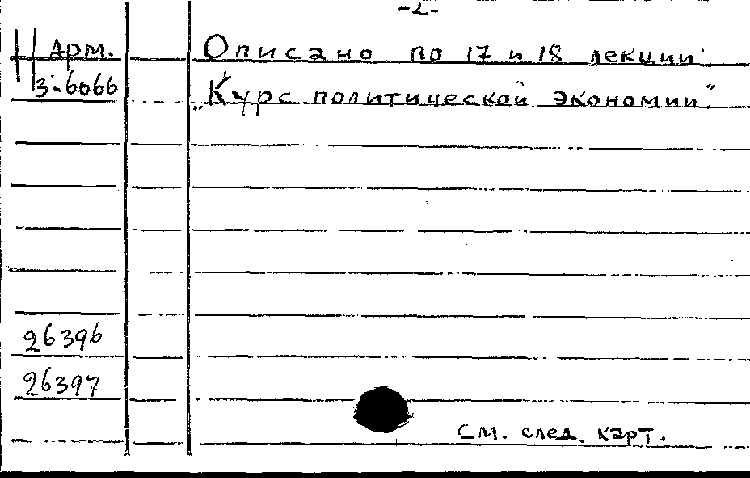 -2-
Арм.
3-6066
Описано по 17 и 18 лекции
„Курс политической экономии"
26396
26397
См. след. карт.